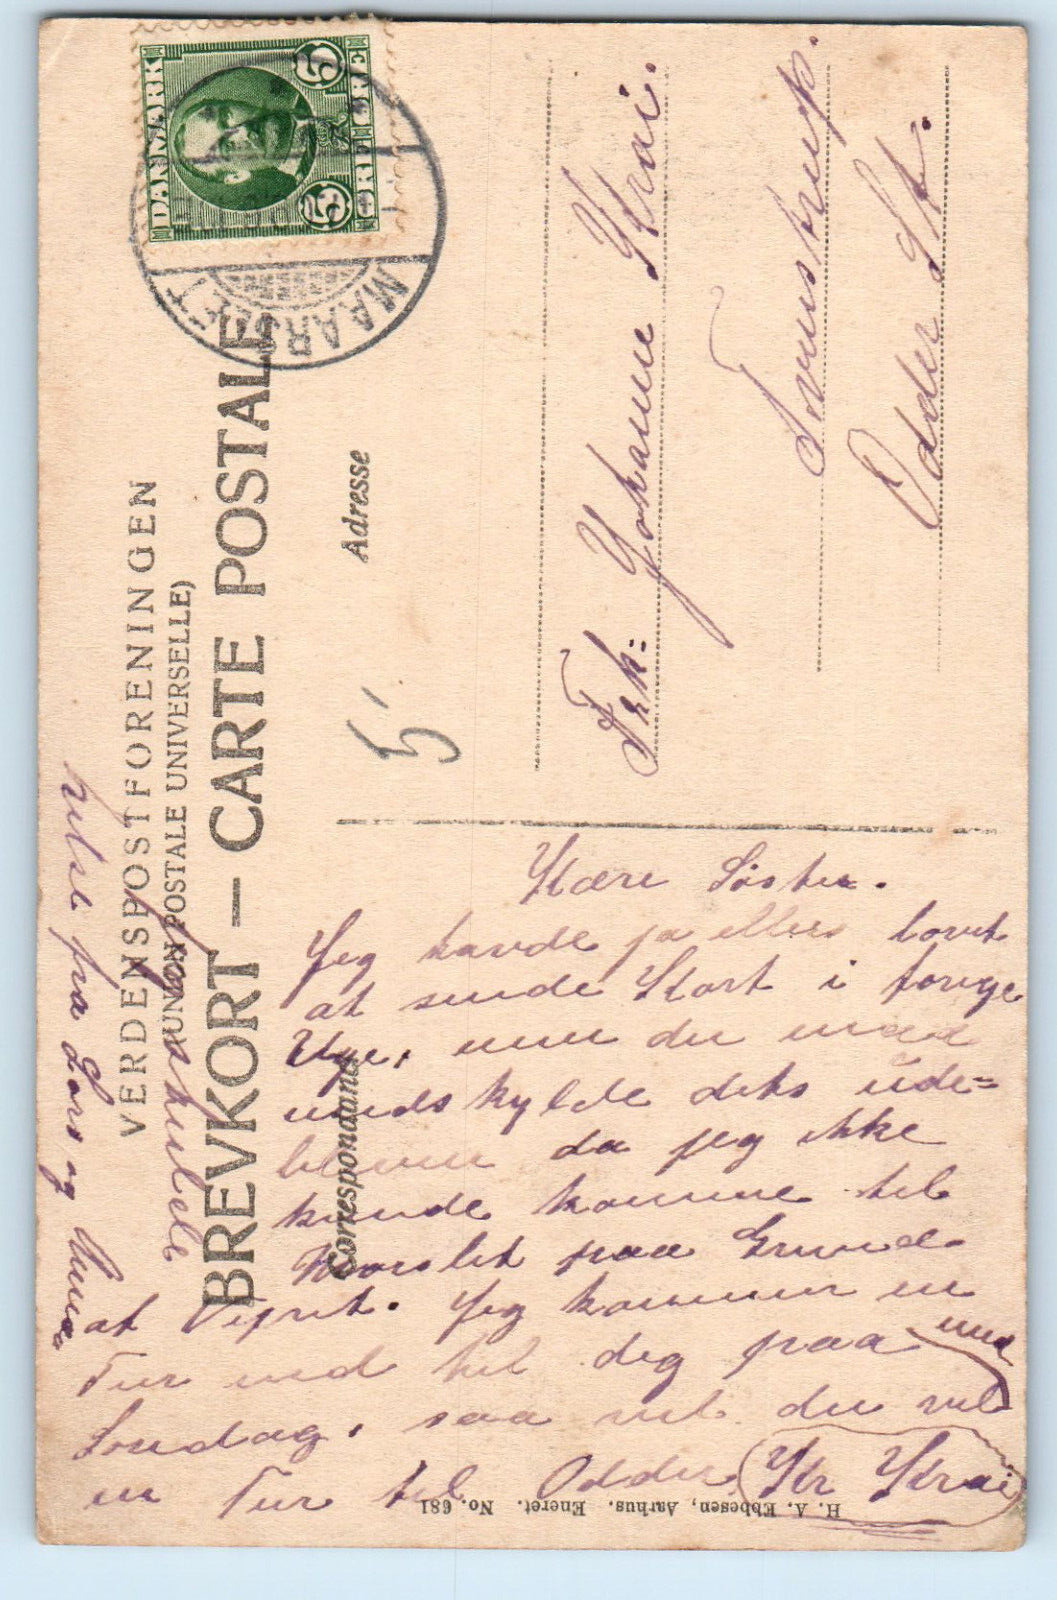 VERDENSPOSTFORENINGEN
(UNION POSTALE UNIVERSELLE)
BREVKORT — CARTE POSTALE
DANMARK
5 5
MAARSLET
Adresse
Correspondance
5
Frk: Johanne Krai.
Tvenstrup.
Odder St.
Kære Søster.
Jeg havde jo ellers lovet
at sende Kort i forige
Uge, men du maa
undskylde dets ude=
bliven da jeg ikke
kunde komme til
Maarslet paa Grund
af Vejret. Jeg kommer en
Tur ned til dig paa
Søndag, saa vil du vel
en Tur til Odder
Kr Krai
Hilsen fra Lars og
H. A. Ebbesen, Aarhus. Eneret. No. 681